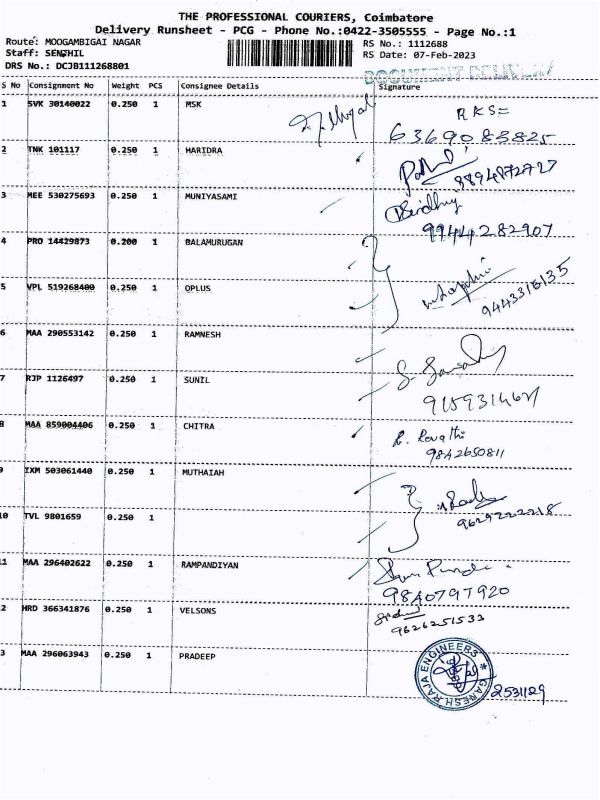 THE PROFESSIONAL COURIERS, Coimbatore
Delivery Runsheet - PCG - Phone No.:0422-3505555 - Page No.:1
Route: MOOGAMBIGAI NAGAR RS No.: 1112688
Staff: SENTHIL RS Date: 07-Feb-2023
DRS No.: DCJB111268801 DOCUMENT DELIVERY
S No Consignment No Weight PCS Consignee Details Signature
1 SVK 30140022 0.250 1 MSK RKS=
6369083825
2 TNK 101117 0.250 1 HARIDRA
9894872727
3 MEE 530275693 0.250 1 MUNIYASAMI
9944282907
4 PRO 14429873 0.200 1 BALAMURUGAN
5 VPL 519268400 0.250 1 OPLUS 9443316135
6 MAA 290553142 0.250 1 RAMNESH
7 RJP 1126497 0.250 1 SUNIL
8 MAA 859004406 0.250 1 CHITRA R. Revathi
9842650811
9 IXM 503061440 0.250 1 MUTHAIAH
10 TVL 9801659 0.250 1 9629222218
11 MAA 296402622 0.250 1 RAMPANDIYAN
9840797920
2 HRD 366341876 0.250 1 VELSONS
9626251533
3 MAA 296063943 0.250 1 PRADEEP GANESH RAJA ENGINEERS
2531129